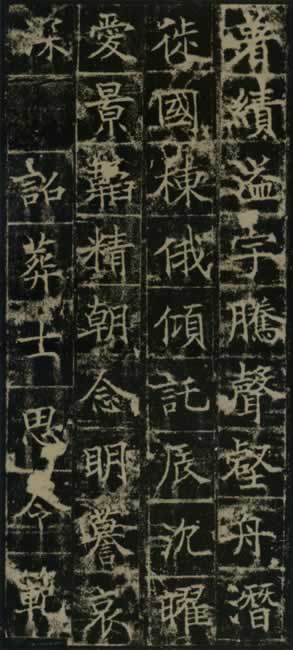 著績溢宇騰聲壑舟潛
徙國棟俄傾託辰沈曜
愛景韜精朝念明謩哀
深詔葬士思令範